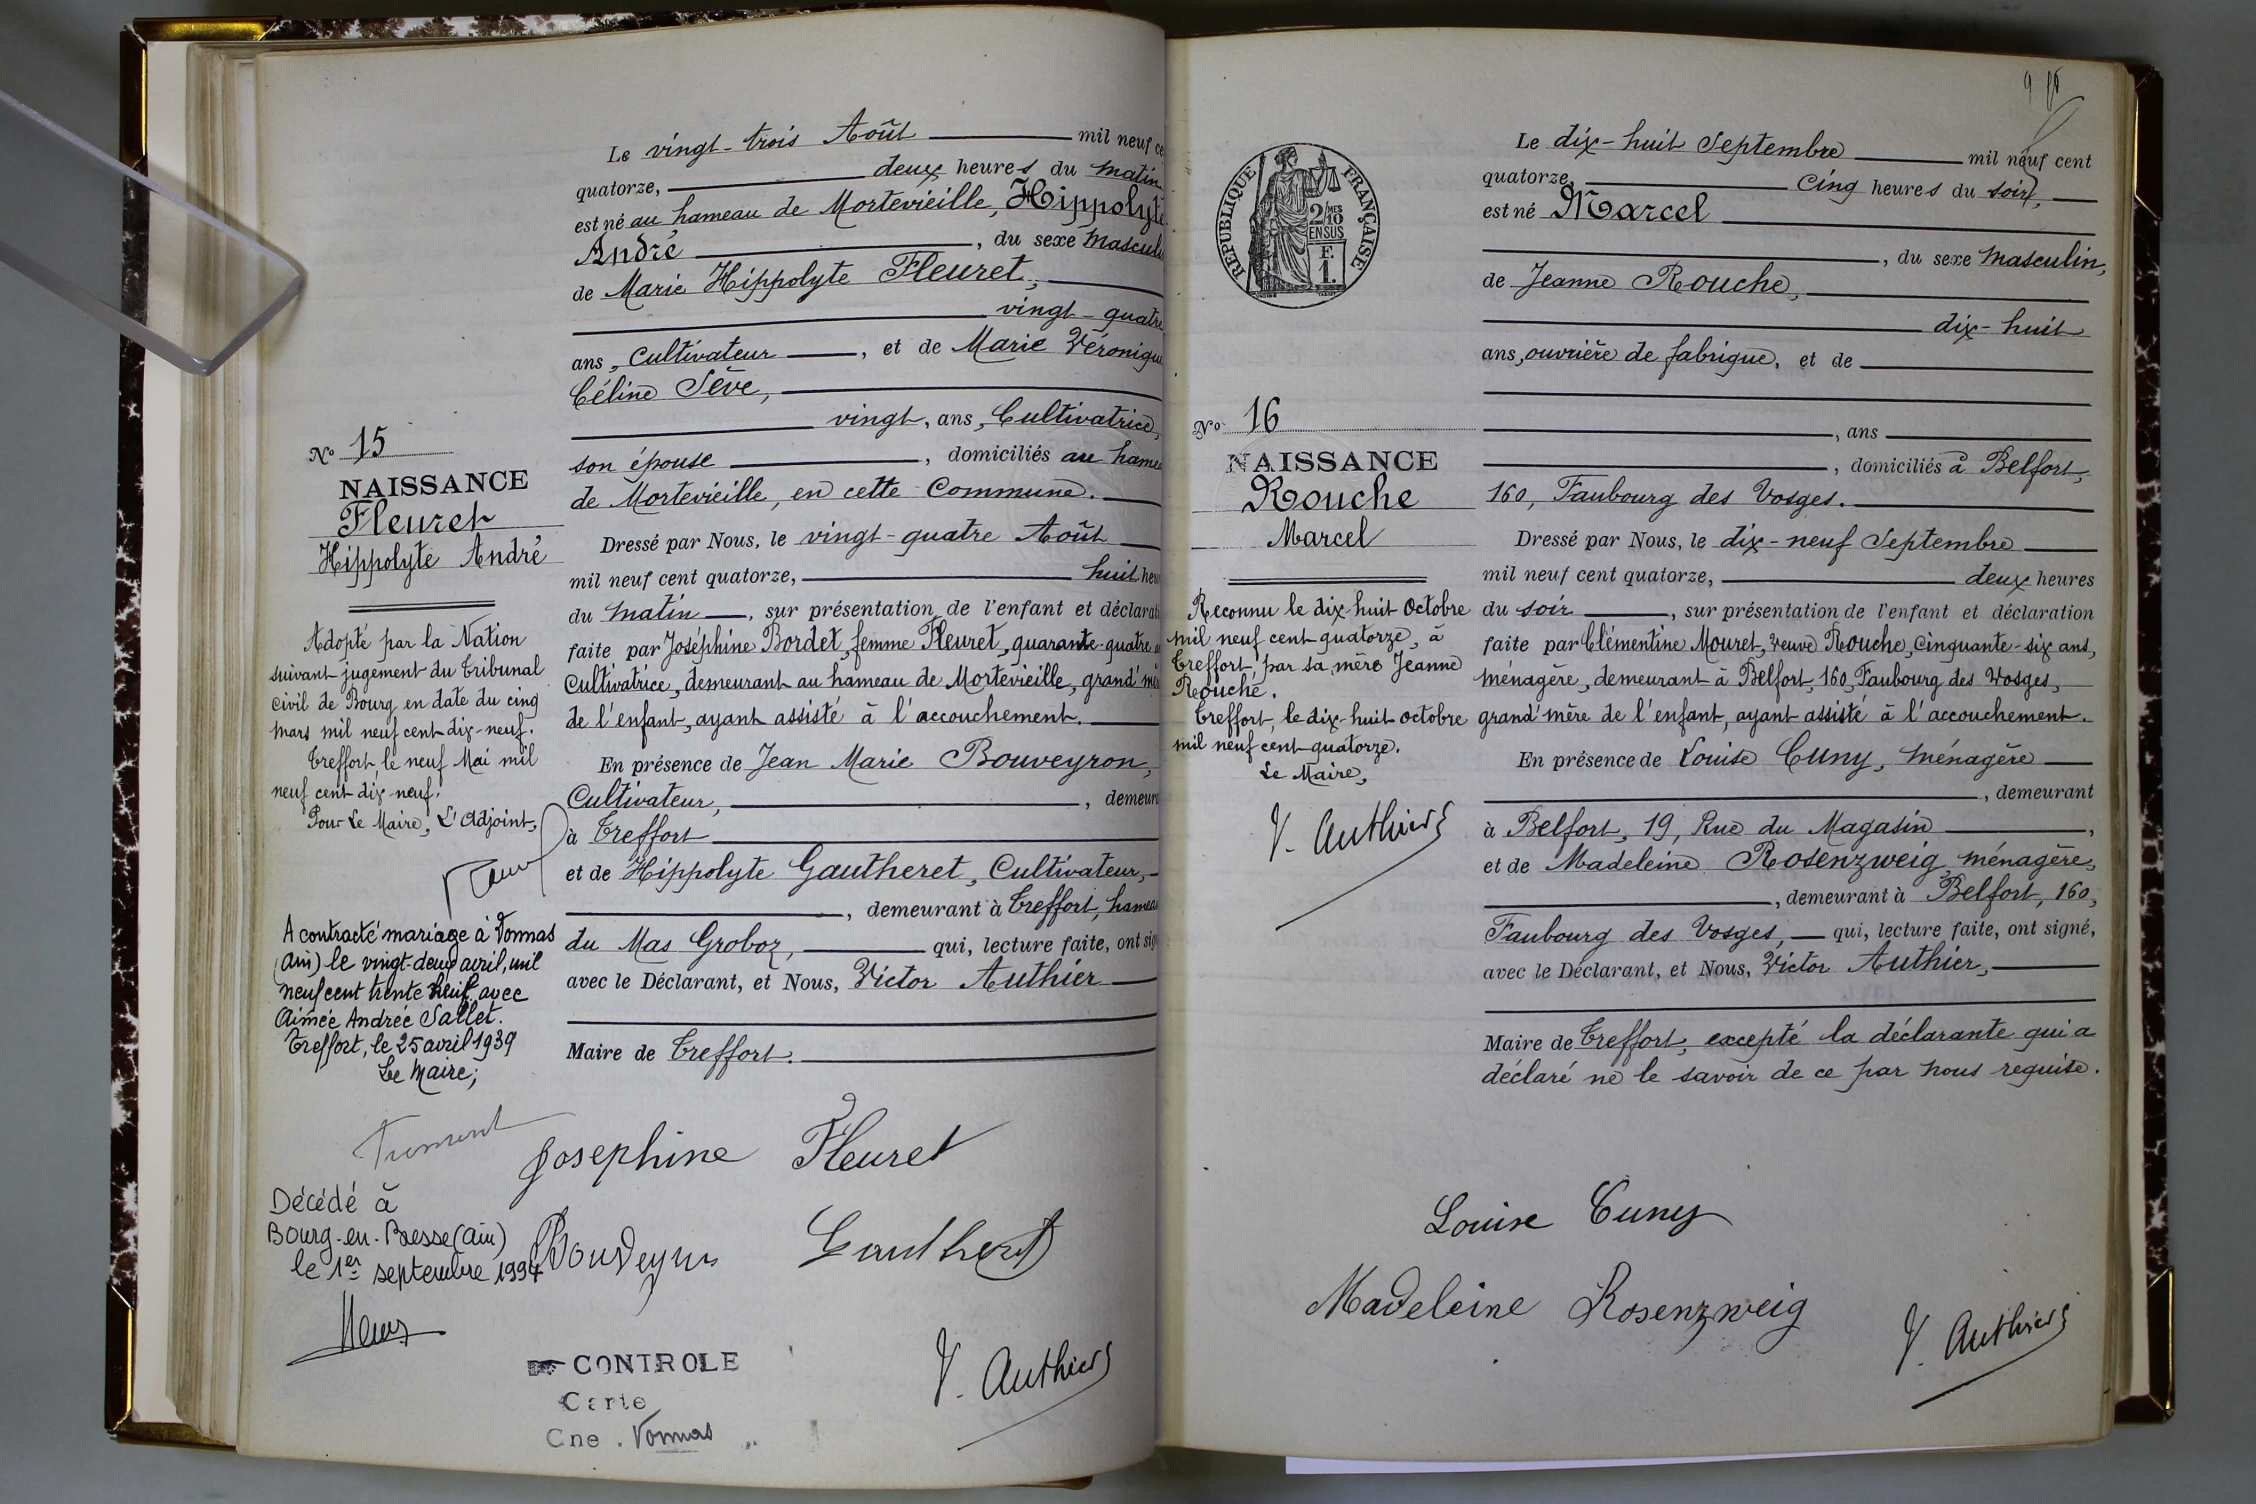 Le vingt-trois Août mil neuf ce
quatorze, deux heures du matin
est né au hameau de Mortevieille, Hippolyte
André, du sexe masculi
de Marie Hippolyte Fleuret,
vingt-quatre
ans, cultivateur, et de Marie Véronique
Céline Sève,
vingt, ans, Cultivatrice,
son épouse, domiciliés au hamea
de Mortevieille, en cette Commune.
Dressé par Nous, le vingt-quatre Août
mil neuf cent quatorze, huit heur
du matin, sur présentation de l'enfant et déclarati
faite par Joséphine Bordet, femme Fleuret, quarante-quatre a
Cultivatrice, demeurant au hameau de Mortevieille, grand'mè
de l'enfant, ayant assisté à l'accouchement.
En présence de Jean Marie Bouveyron,
Cultivateur, demeura
à Treffort
et de Hippolyte Gautheret, Cultivateur,
, demeurant à Treffort, hameau
du Mas Groboz, qui, lecture faite, ont sig
avec le Déclarant, et Nous, Victor Authier
Maire de Treffort.
Josephine Fleuret
Bouveyron Gautheret
V. Authier
CONTROLE
Carte
Cne. Vonnas
No 15
NAISSANCE
Fleuret
Hippolyte André
Adopté par la Nation
suivant jugement du Tribunal
Civil de Bourg en date du cinq
mars mil neuf cent dix-neuf.
Treffort, le neuf Mai mil
neuf cent dix-neuf.
Pour Le Maire, L'Adjoint,
A contracté mariage à Vonnas
(Ain) le vingt-deux avril, mil
neuf cent trente neuf, avec
Aimée Andrée Sallet.
Treffort, le 25 avril 1939
Le Maire;
Décédé à
Bourg-en-Bresse (Ain)
le 1er septembre 1994
Le dix-huit Septembre mil neuf cent
quatorze, cinq heures du soir,
est né Marcel
, du sexe masculin,
de Jeanne Rouche,
dix-huit
ans, ouvrière de fabrique, et de
, ans
, domiciliés à Belfort,
160, Faubourg des Vosges.
Dressé par Nous, le dix-neuf Septembre
mil neuf cent quatorze, deux heures
du soir, sur présentation de l'enfant et déclaration
faite par Clémentine Mouret, veuve Rouche, Cinquante-six ans,
ménagère, demeurant à Belfort, 160, Faubourg des Vosges,
grand'mère de l'enfant, ayant assisté à l'accouchement.
En présence de Louise Cuny, ménagère
, demeurant
à Belfort, 19, Rue du Magasin,
et de Madeleine Rosenzweig, ménagère,
, demeurant à Belfort, 160,
Faubourg des Vosges, qui, lecture faite, ont signé,
avec le Déclarant, et Nous, Victor Authier,
Maire de Treffort, excepté la déclarante qui a
déclaré ne le savoir de ce par nous requise.
Louise Cuny
Madeleine Rosenzweig
V. Authier
RÉPUBLIQUE FRANÇAISE
2/10MES
EN SUS
F.
1.
No 16
NAISSANCE
Rouche
Marcel
Reconnu le dix-huit Octobre
mil neuf cent quatorze, à
Treffort par sa mère Jeanne
Rouche.
Treffort, le dix-huit octobre
mil neuf cent quatorze.
Le Maire,
V. Authier